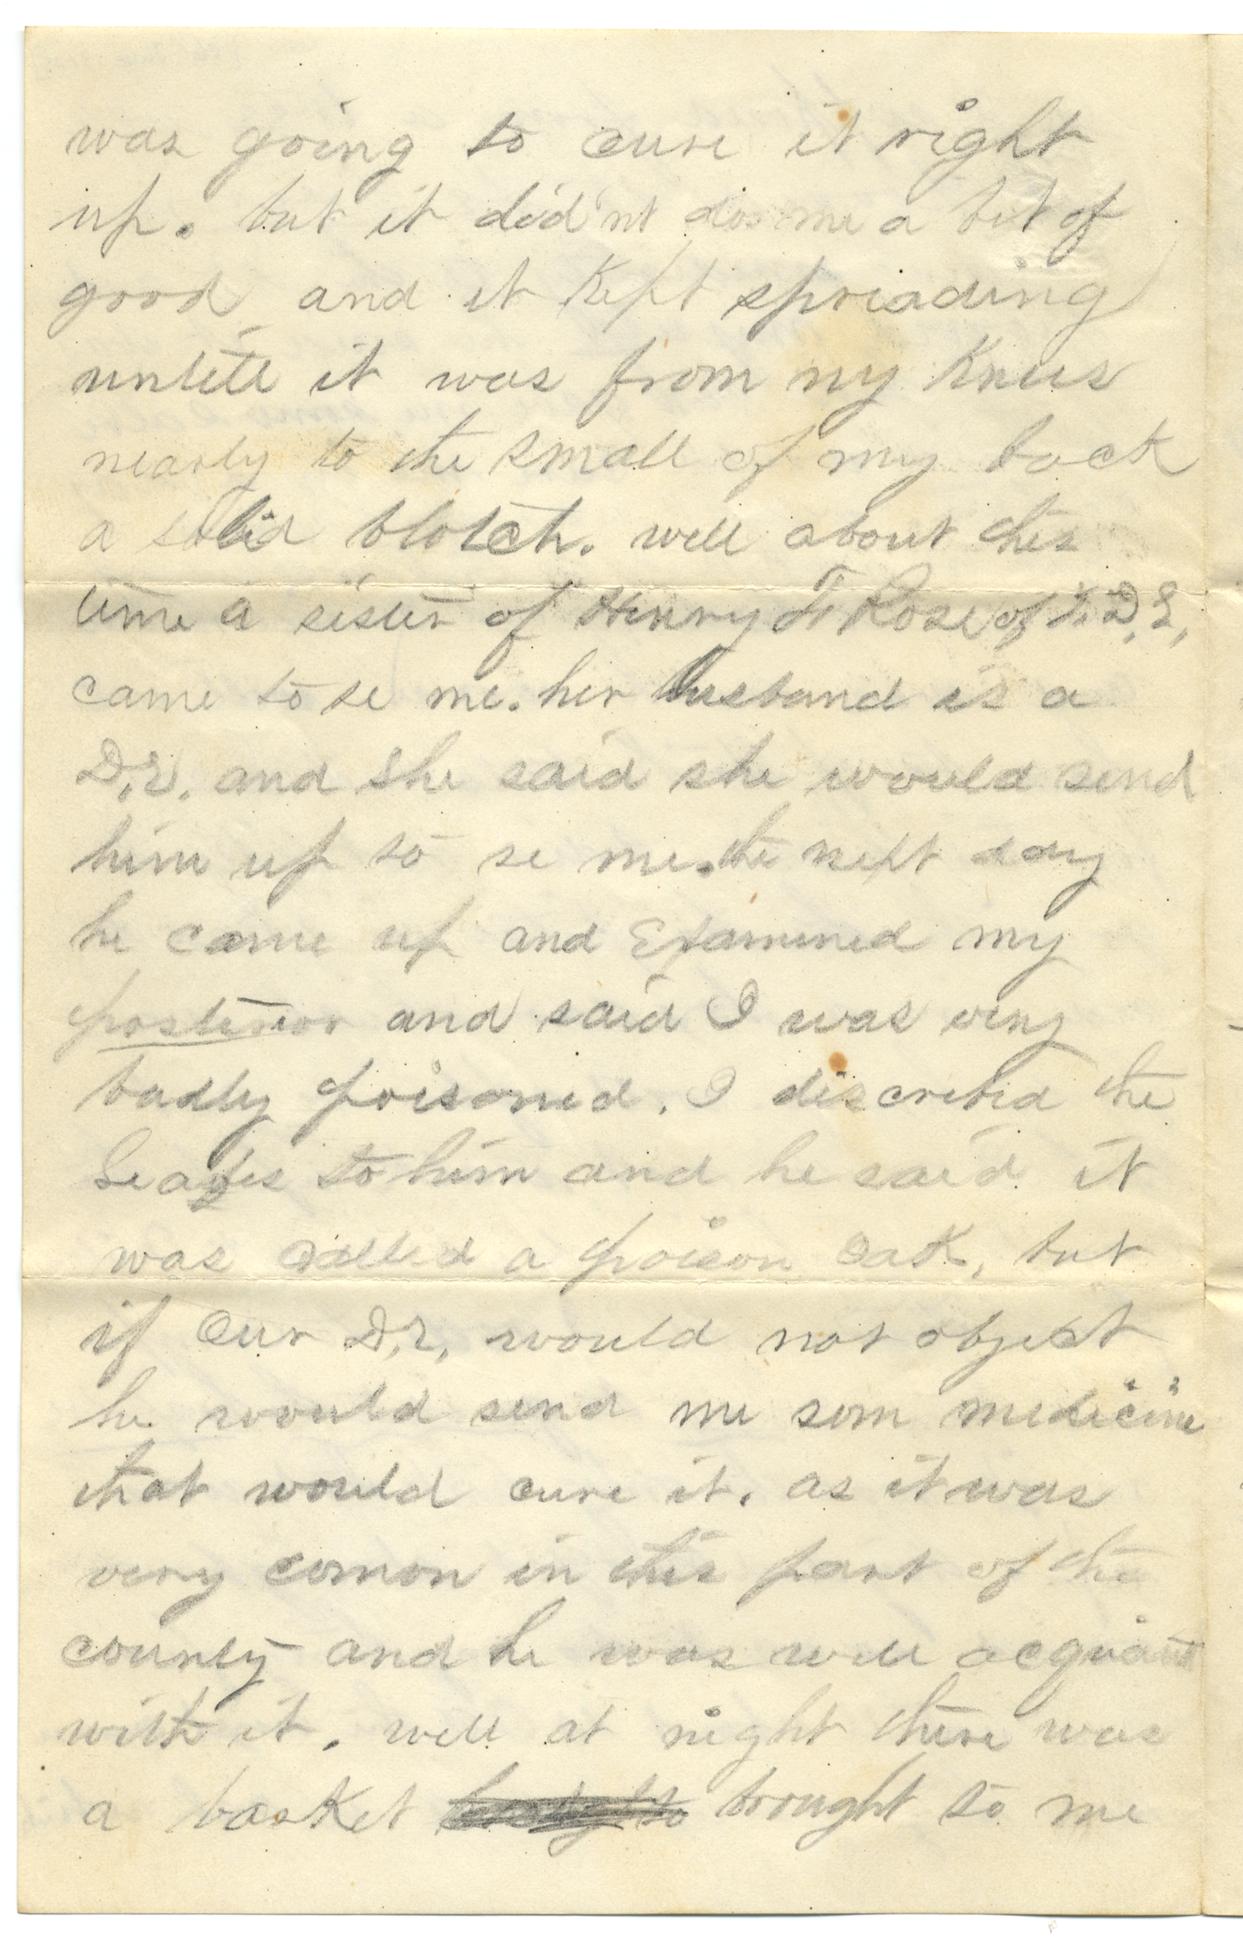 was going to cure it right
up. but it did'nt do me a bit of
good and it kept spreading
untill it was from my knees
nearly to the small of my back
a solid blotch. well about this
time a sister of Henry F Rose of Co. D. 2,
came to se me. her husband is a
D.r. and she said she would send
him up to se me. the next day
he came up and Examined my
posterior and said I was very
badly poisoned. I discribed the
leaves to him and he said it
was called a poison oak, but
if our D.r. would not object
he would send me som medicine
that would cure it. as it was
very comon in this part of the
county and he was well acquaint
with it. well at night there was
a basket brought to me